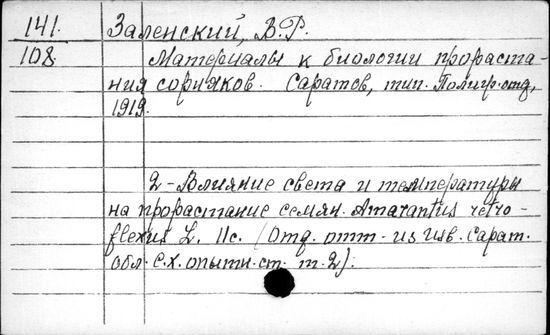 141. Заленский, В.Р.
108. Материалы к биологии прораста-
ния сорняков. Саратов, тип. Полигр. отд,
1919.
2 - Влияние света и температуры
на прорастание семян. Amarantus retro-
flexus L. 11с. (Отд. отт. из изв. Сарат.
обл. с.х. опытн. ст. т. 2).